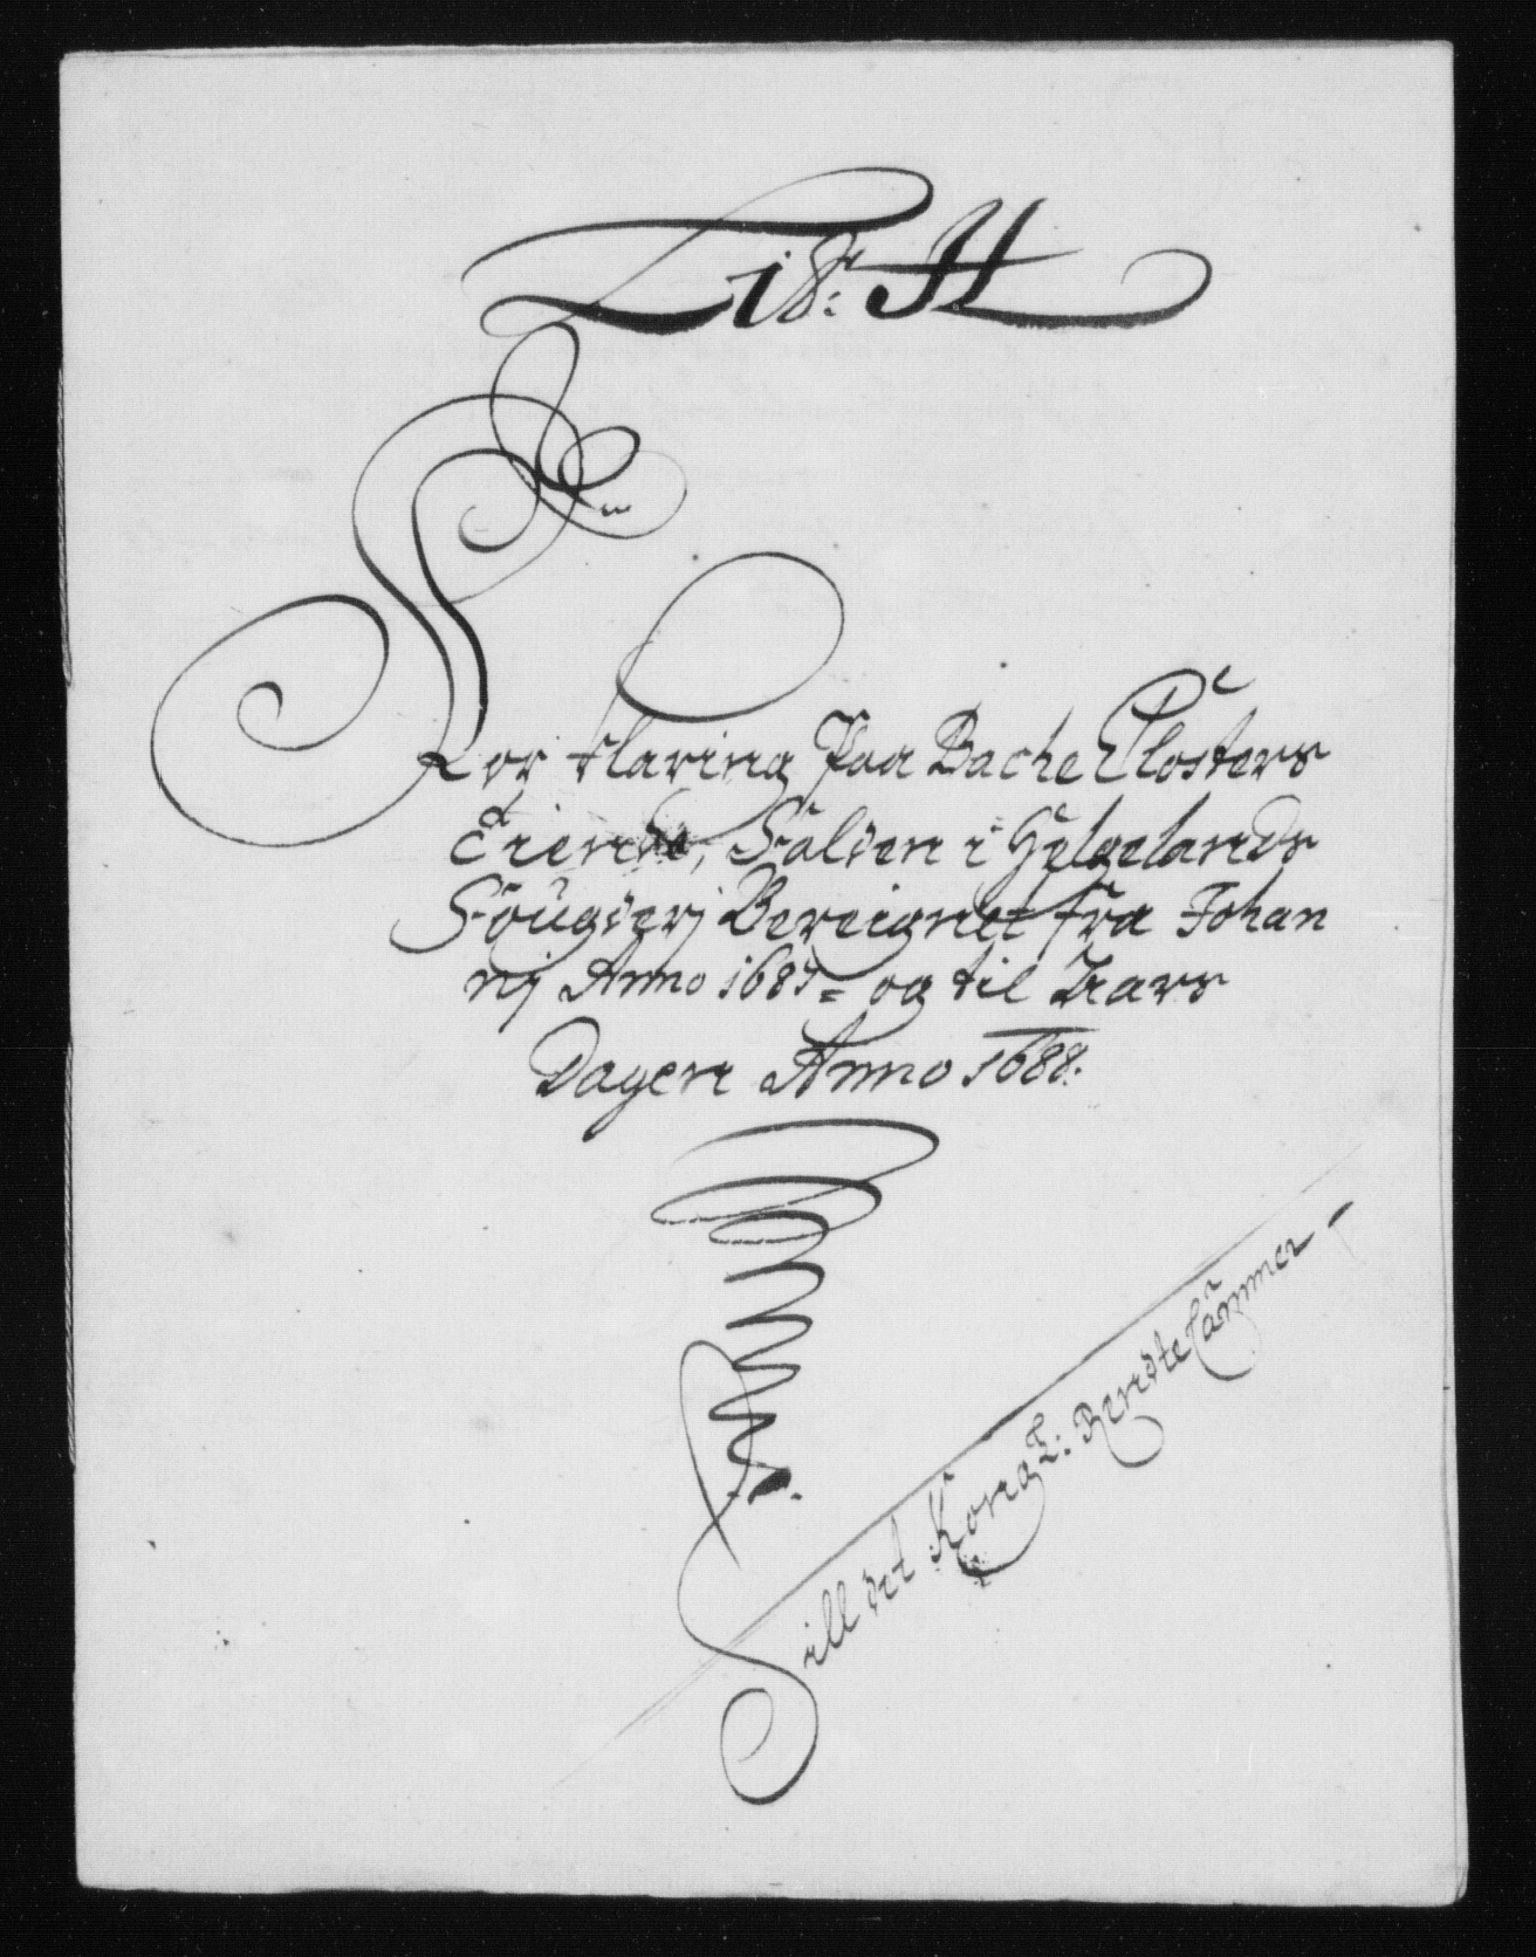 Litr: H
En
For klaring Paa Bache Closters
Eiende, Falden i Helgelands
Fougderj Bereignet fra Johan
nj Anno 1687= og til Aars
Dagen Anno 1688.
Till det Kongl: Rendte Cammer -